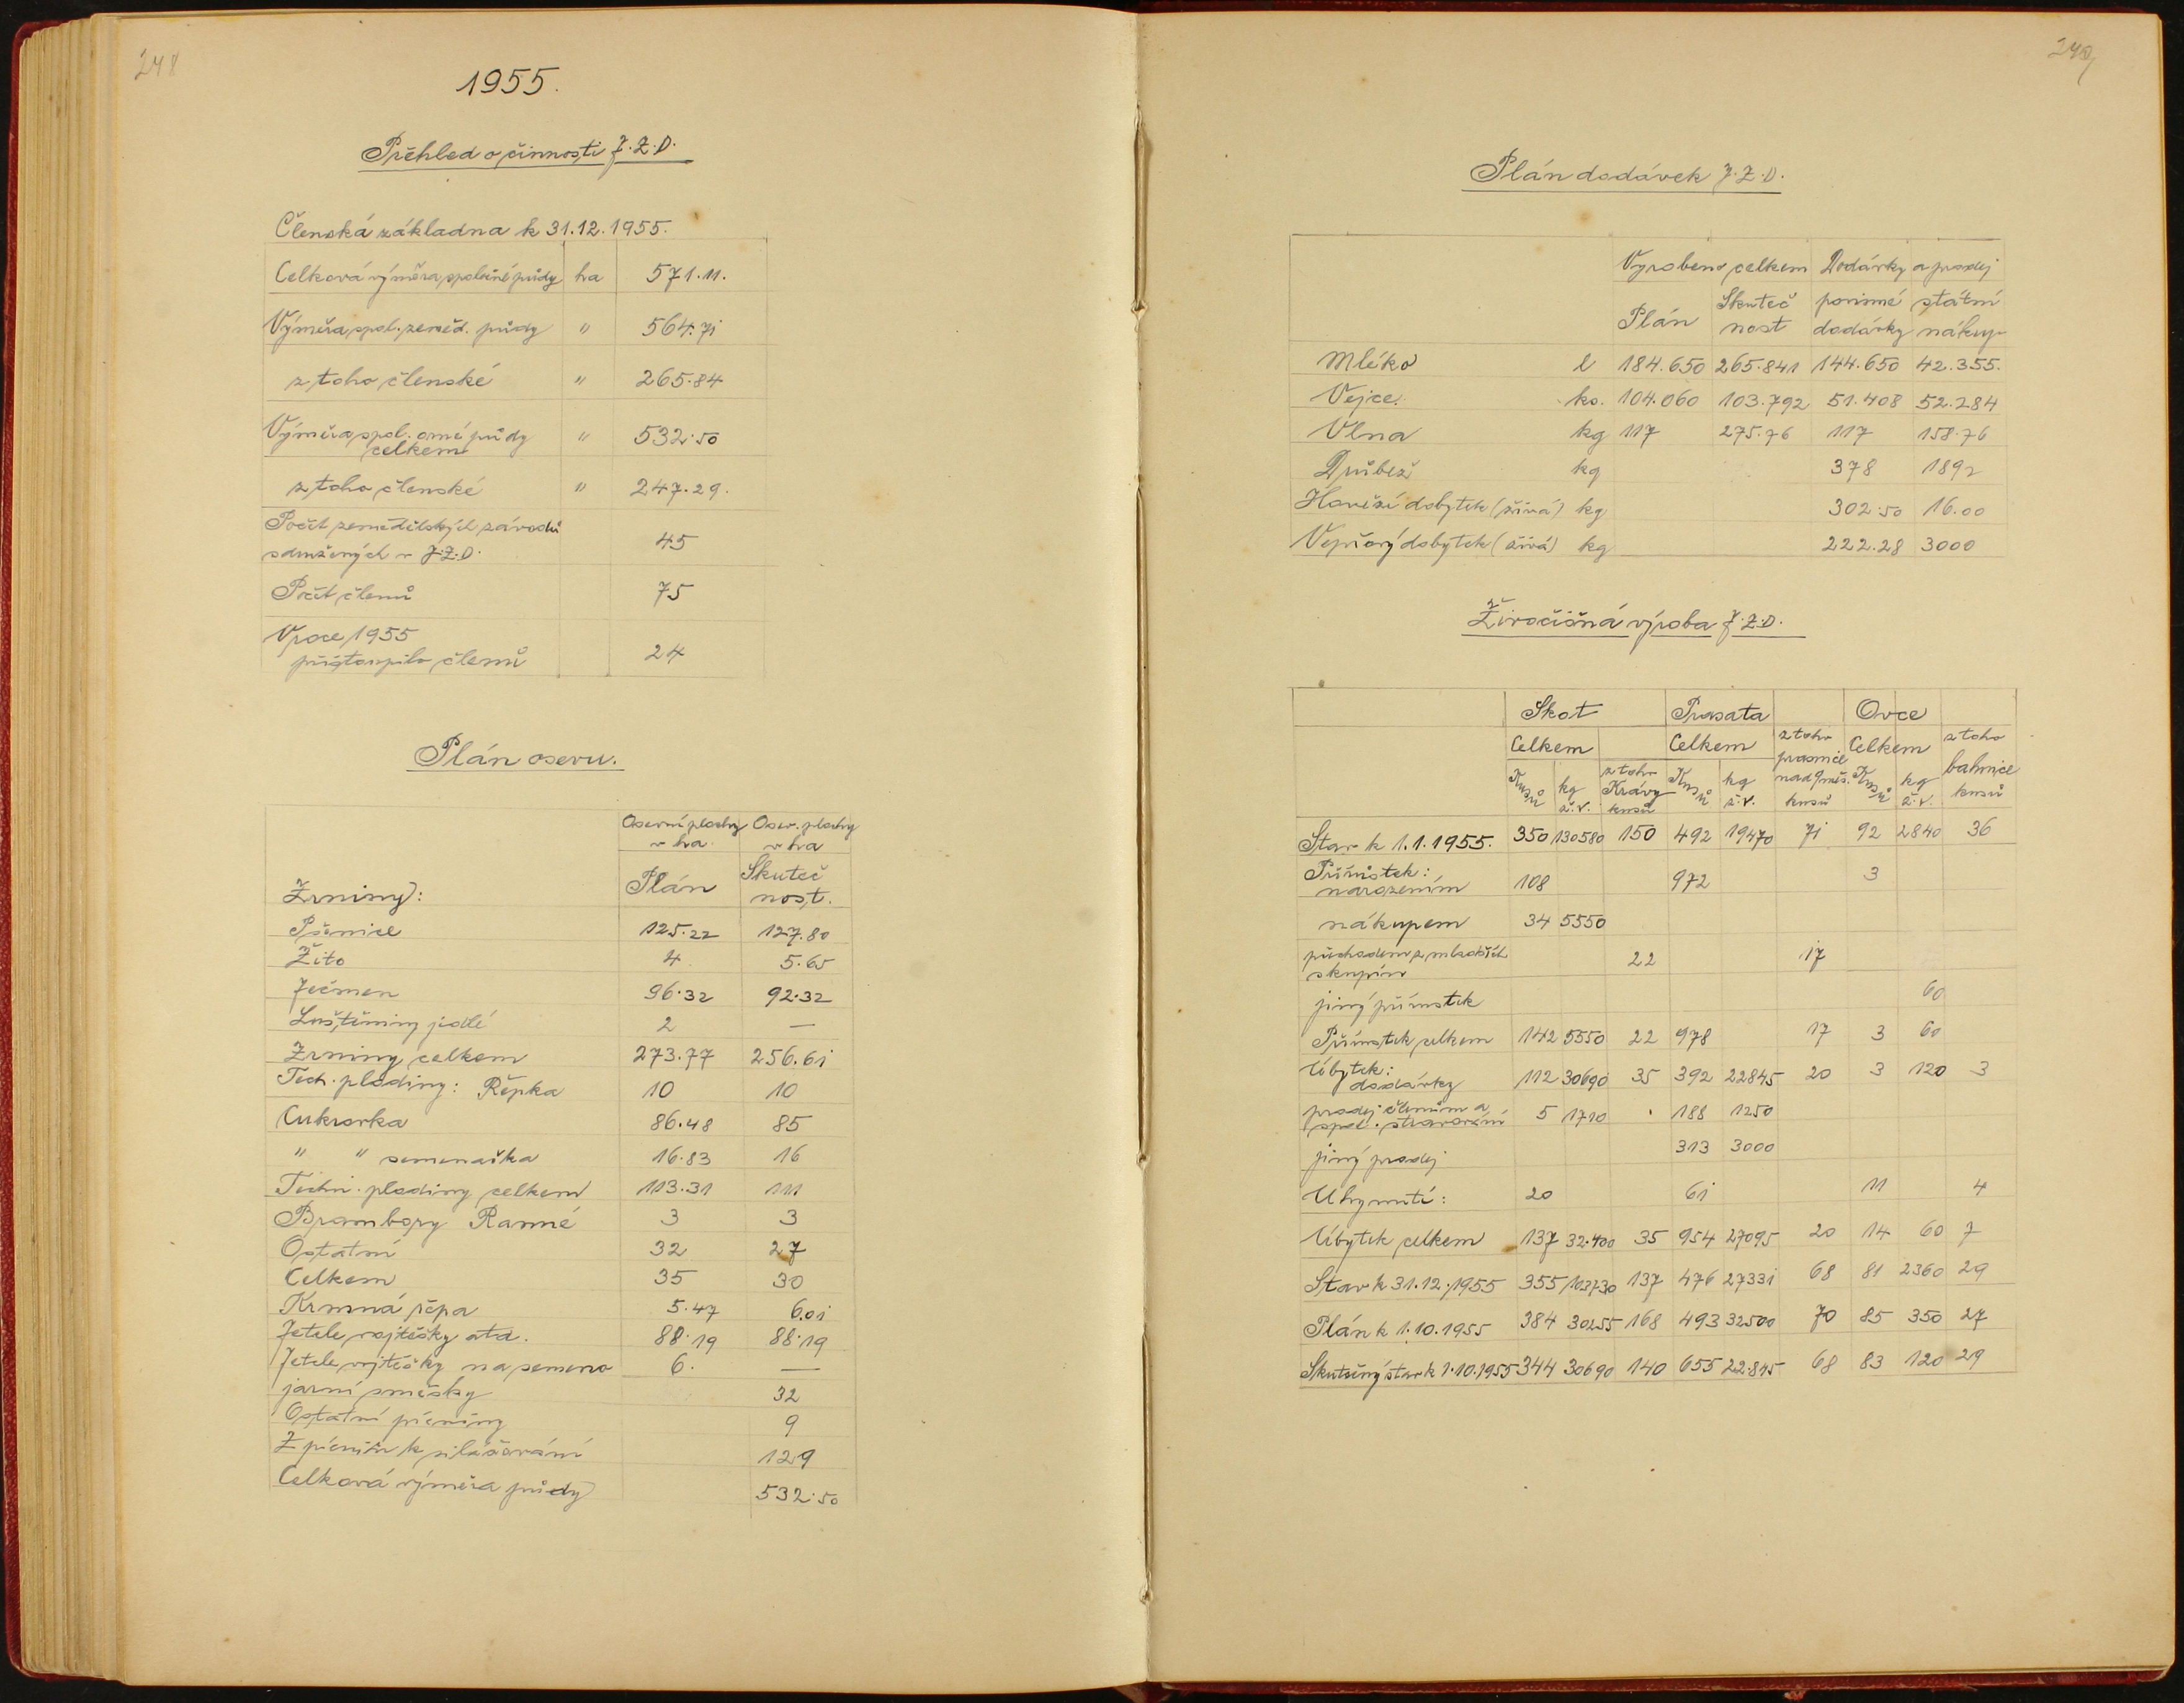 248
1955.
Přehled o činnosti J.Z.D.
Členská základna k 31.12.1955.
Celková výměra společné půdy ha 571.11.
Výměra spol. zeměd. půdy " 564.71
z toho členské " 265.84
Výměra spol. orné půdy
celkem " 532.50
z toho členské " 247.29.
Počet zemědělských závodů
sdružených v J.Z.D. 45
Počet členů 75
V roce 1955
přistoupilo členů 24
Plán osevu.
Osevní plochy Osev. plochy
v ha. v ha
Zrniny: Plán Skuteč
nost.
Pšenice 125.22 127.80
Žito 4 5.65
Ječmen 96.32 92.32
Luštěniny jedlé 2 —
Zrniny celkem 273.77 256.61
Tech. plodiny: Řepka 10 10
Cukrovka 86.48 85
" " semenačka 16.83 16
Techn. plodiny celkem 113.31 111
Brambory Ranné 3 3
Ostatní 32 27
Celkem 35 30
Krmná řepa 5.47 6.01
Jetele vojtěšky atd. 88.19 88.19
Jetele vojtěšky na semeno 6. —
jarní směsky 32
Ostatní pícniny 9
Z pícnin k silážování 129
Celková výměra půdy 532.50
249
Plán dodávek J.Z.D.
Vyrobeno celkem Dodávky a prodej
Plán Skuteč
nost povinné
dodávky státní
nákup
Mléko l 184.650 265.841 144.650 42.355.
Vejce. ks. 104.060 103.792 51.408 52.284
Vlna kg 117 275.76 117 158.76
Drůbež kg 378 1892
Hovězí dobytek (živá) kg 302.50 16.00
Vepřový dobytek (živá) kg 222.28 3000
Živočišná výroba J.Z.D.
Skot Prasata Ovce
Celkem Celkem z toho
prasnice
nad 9 měs.
kusů Celkem z toho
bahnice
kusů
Kusů kg
ž.v. z toho
Krávy
kusů Kusů kg
ž.v. Kusů kg
ž.v.
Stav k 1.1.1955. 350 130580 150 492 19470 71 92 2840 36
Přírůstek:
narozením 108 972 3
nákupem 34 5550
převodem z mladších
skupin 22 17
jiný přírůstek 60
Přírůstek celkem 142 5550 22 978 17 3 60
Úbytek:
dodávky 112 30690 35 392 22845 20 3 120 3
prodej členům a
spol. stravování 5 1710 . 188 1250
jiný prodej 313 3000
Uhynutí: 20 61 11 4
Úbytek celkem 137 32.400 35 954 27095 20 14 60 7
Stav k 31.12.1955 355 103730 137 476 27331 68 81 2360 29
Plán k 1.10.1955 384 30255 168 493 32500 70 85 350 27
Skutečný stav k 1.10.1955 344 30690 140 655 22.845 68 83 120 29